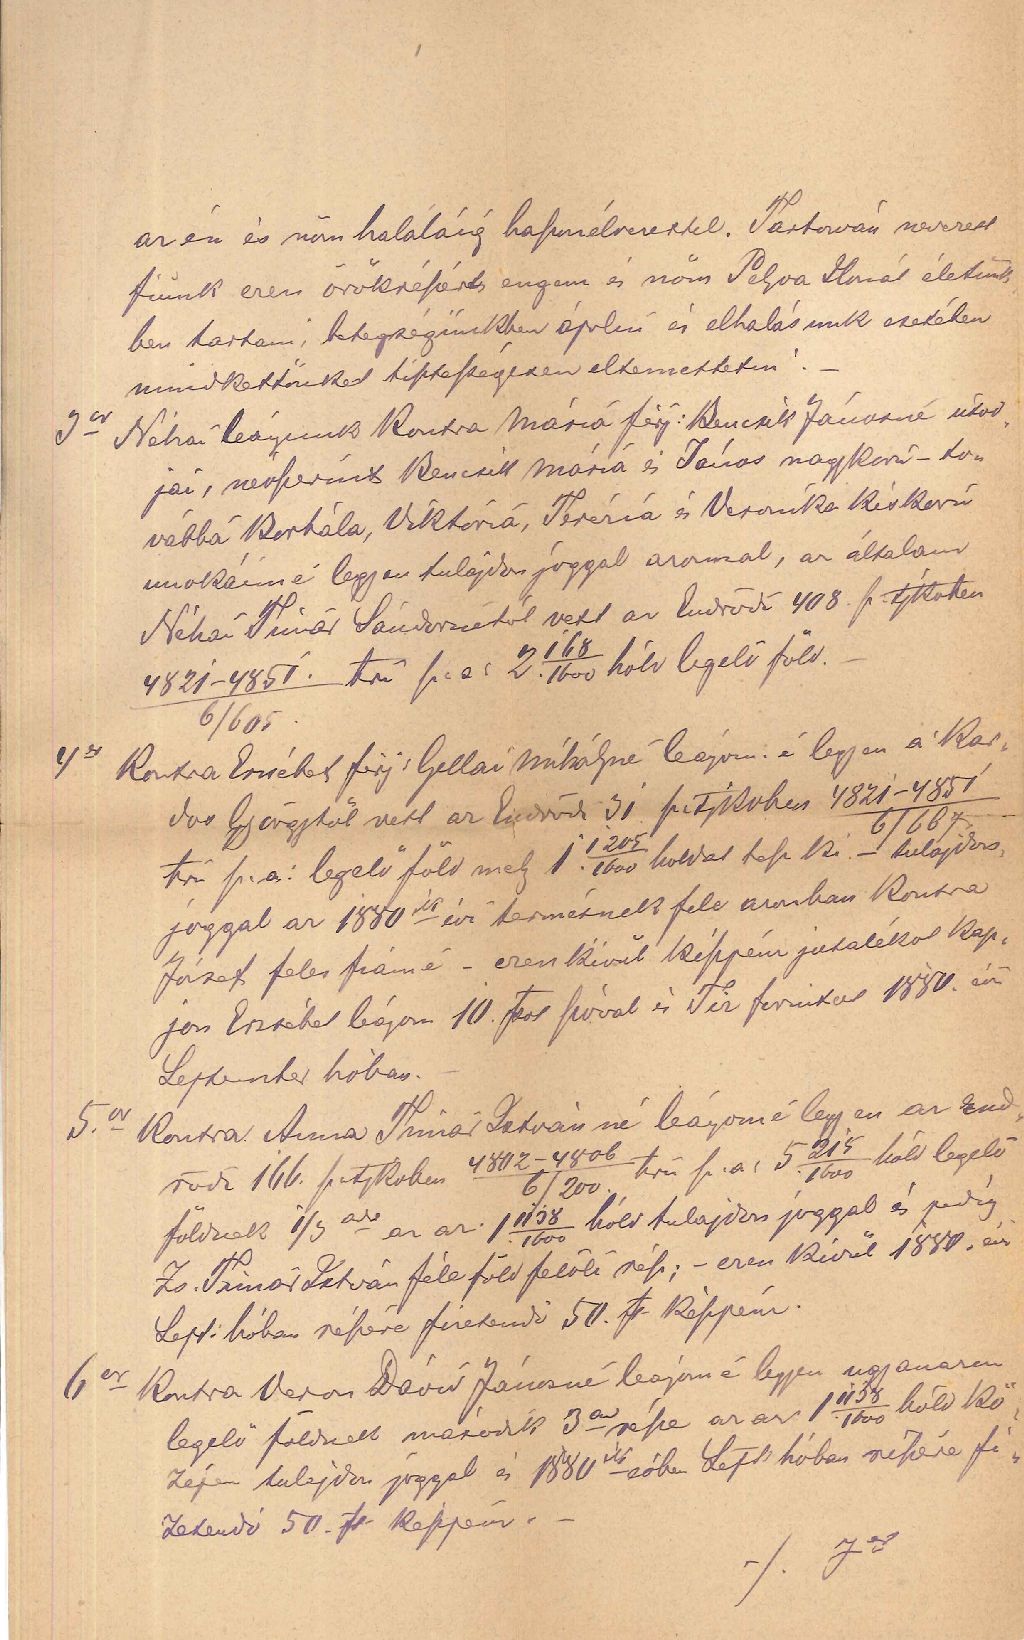 az én és nőm haláláig haszonélvezettel. Tartozván nevezett
fiunk ezen örökrészért engem és nőm Pelyva Ilonát életünk-
ben tartani, betegségünkben ápolni és elhalásunk esetében
mindkettőnket tisztességesen eltemettetni. –
3or Néhai leányunk Kontra Mária férj: Bencsik Jánosné utód-
jai, névszerint Bencsik Mária és János nagykorú – to-
vábbá Borbála, Viktória, Terézia és Veronika kiskorú
unokáimé legyen tulajdon joggal azonnal, az általam
Néhai Timár Sándornétól vett az Endrődi 408. p. tjkvben
4821–4851./6/605. trü sz. a: 2 168/1600 hold legelő föld. –
4er Kontra Erzsébet férj: Gellai Mihályné leányom: é legyen a Kar-
dos Györgytől vett az Endrődi 31 p. tjkvben 4821–4851/6/667.
trü sz. a: legelő föld mely 1 1205/1600 holdat tesz ki – tulajdon
joggal az 1880ik évi termésnek fele azonban Kontra
József feles fiamé – ezenkívül készpénz jutalékot kap-
jon Erzsébet leányom 10. ftot szóval és Tíz forintot 1880. évi
September hóban. –
5.ör Kontra Anna Timár István né leányomé legyen az End-
rődi 166. p. tjkvben 4802–4806/6/200. trü sz. a: 5 215/1600 hold legelő
földnek 1/3ada az az. 1 1138/1600 hold tulajdon joggal és pedig
Zs. Timár István féle föld felőli rész; – ezen kívül 1880. évi
Sept: hóban részére fizetendő 50. ft készpénz.
6or Kontra Veron Dávid Jánosné leányomé legyen ugyanazon
legelő földnek második 3ad része az az 1 1138/1600 hold kö-
zépen tulajdon joggal és 1880ik évben Sept: hóban részére fi-
zetendő 50. ft készpénz. –
./. 7er